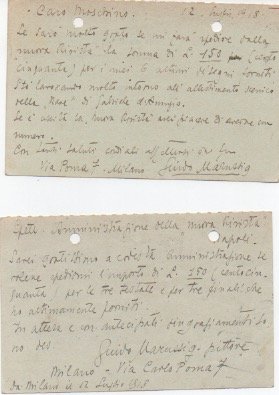 Caro Moschino. 12 luglio 1918.
Le sarò molto grato se mi farà spedire dalla
nuova Rivista la somma di L 150 (cento
cinquanta) per i miei 6 disegni forniti.
Sto lavorando molto intorno all'allestimento scenico
della "Nave" di Gabriele d'Annunzio.
Se è uscita la nuova Rivista avrei piacere di averne un
numero.
Con tanti saluti cordiali
Via Poma 7. Milano Guido Marussig
Spett. Amministrazione della nuova Rivista
Napoli.
Sarei gratissimo a codesta amministrazione se
volesse spedirmi l'importo di L. 150 (centocin
quanta) per le tre testate e per tre finali che
ho ultimamente forniti
In attesa e con anticipati ringraziamenti so
no
Guido Marussig pittore
Milano - Via Carlo Poma 7
da Milano il 12 luglio 1918